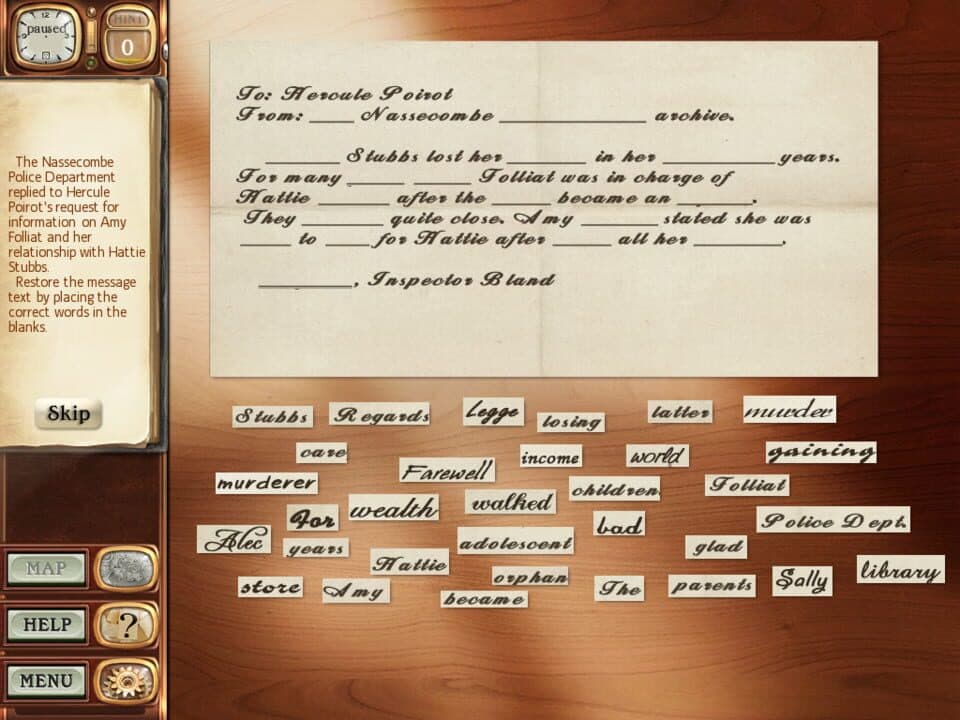 paused
HINT
0
The Nassecombe
Police Department
replied to Hercule
Poirot's request for
information on Amy
Folliat and her
relationship with Hattie
Stubbs.
Restore the message
text by placing the
correct words in the
blanks.
Skip
MAP
HELP
?
MENU
To: Hercule Poirot
From: ____ Nassecombe ____________ archive.
_______ Stubbs lost her _______ in her __________ years.
For many _____ _____ Folliat was in charge of
Hattie ______ after the _____ became an ______.
They _______ quite close. Amy _______ stated she was
____ to ____ for Hattie after _____ all her ________.
________, Inspector Bland
Stubbs Regards Legge losing latter murder
care Farewell income world gaining
murderer children Folliat
For wealth walked bad Police Dept.
Alec years adolescent glad
Hattie orphan library
store Amy became The parents Sally